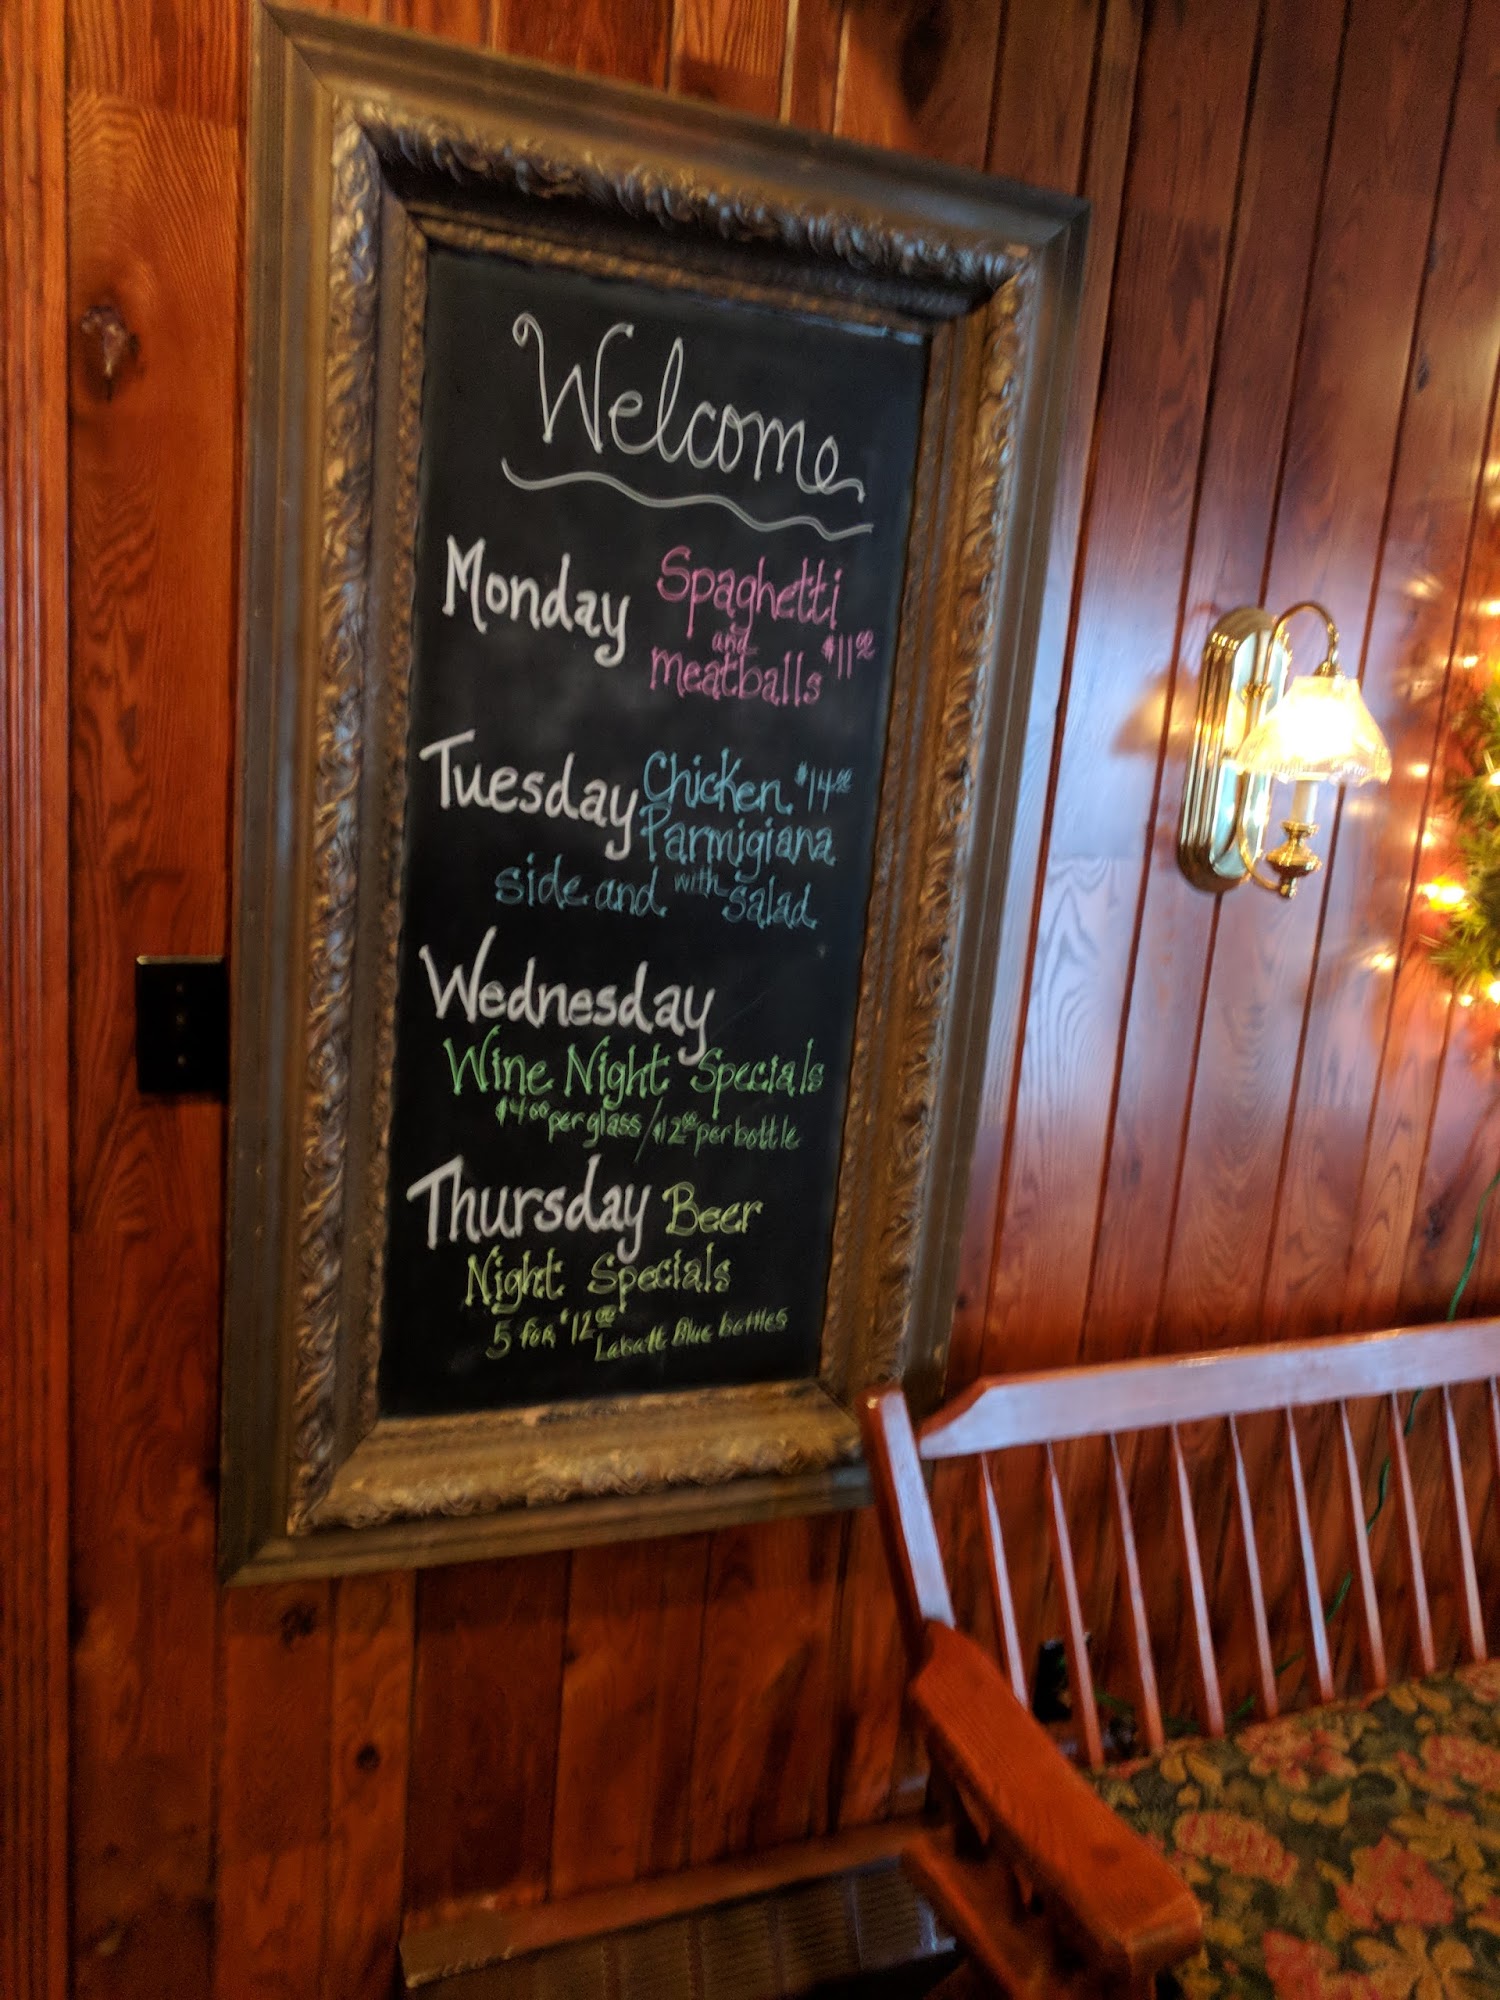 Welcome
Monday Spaghetti
and
meatballs $11.00
Tuesday Chicken $14.00
Parmigiana
side and with salad
Wednesday
Wine Night Specials
$4.00 per glass / $12.00 per bottle
Thursday Beer
Night Specials
5 for $12.00 Labatt Blue bottles